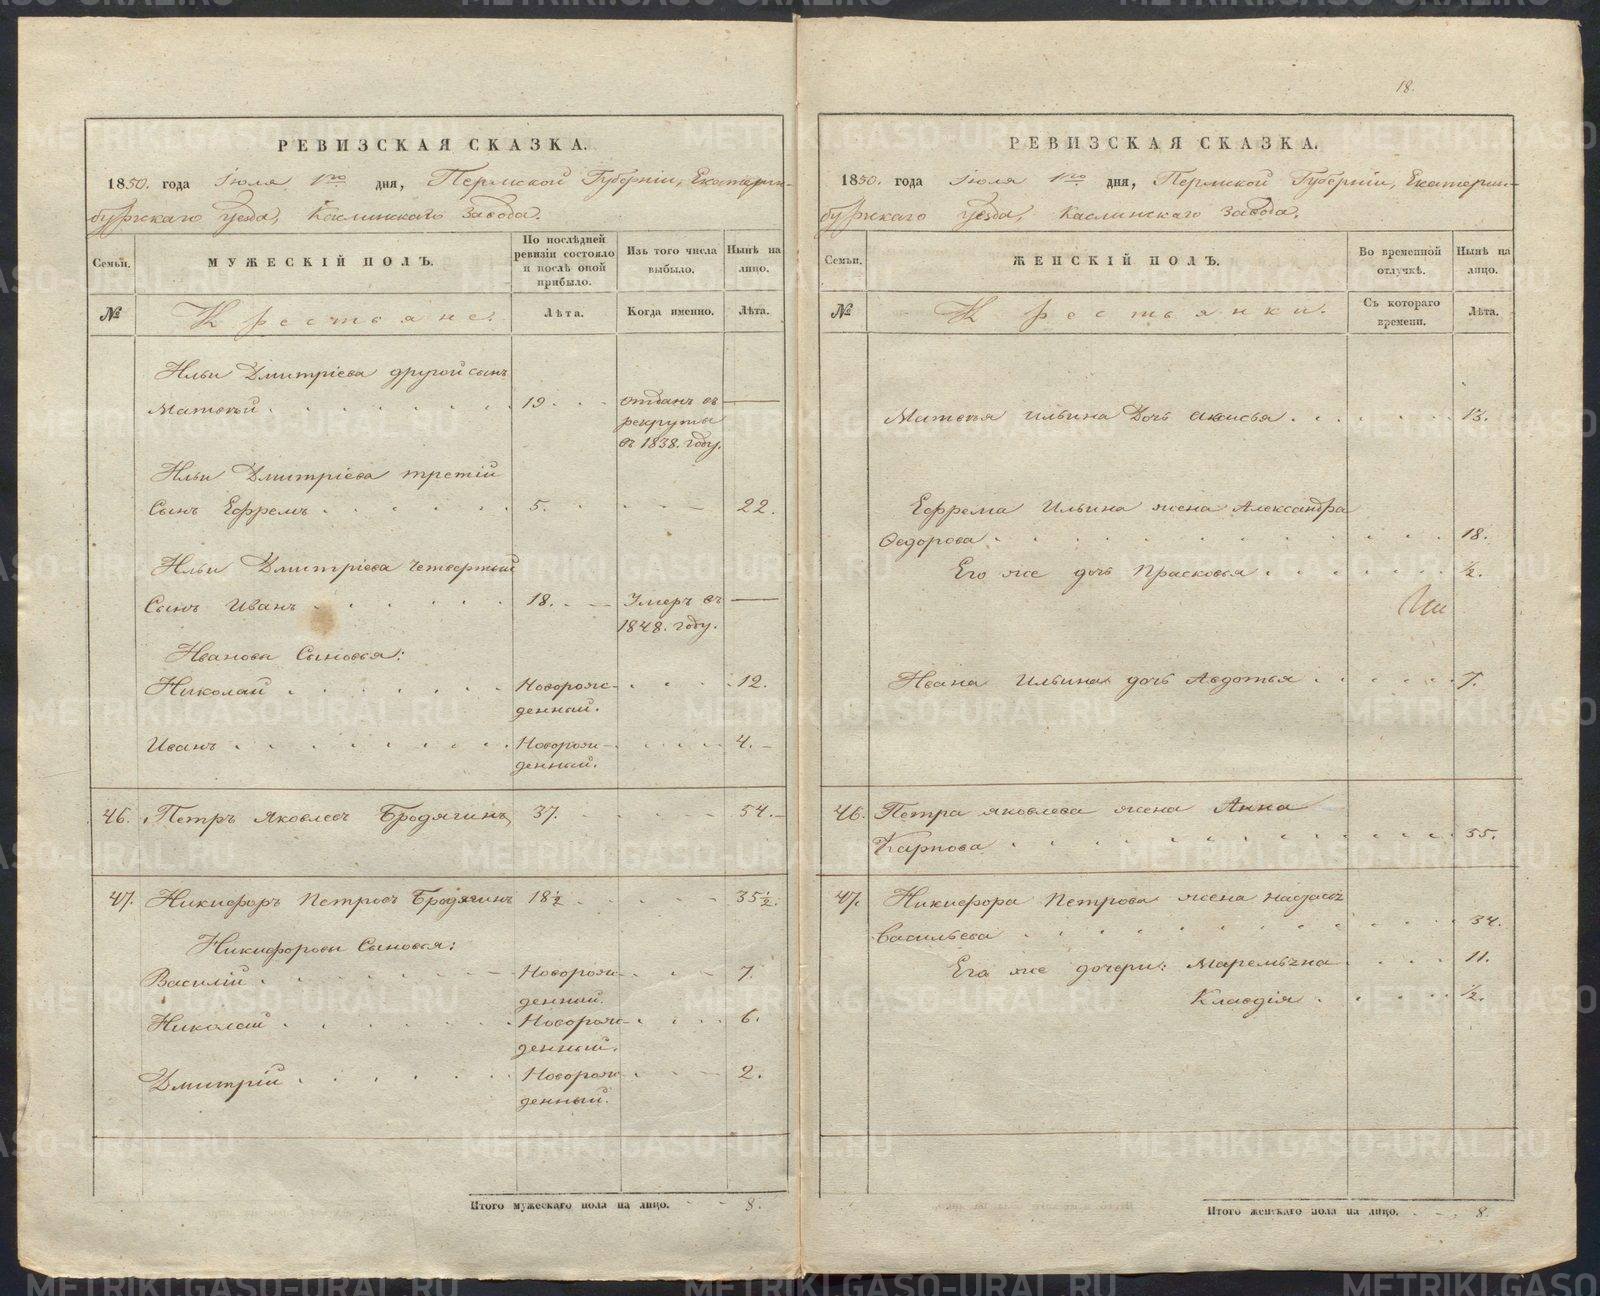 РЕВИЗСКАЯ СКАЗКА.
1850. года Іюля 1го дня, Пермской Губерніи, Екатерин-
бургскаго уезда, Каслинскаго завода.
Семьи.
МУЖЕСКІЙ ПОЛЪ.
По послѣдней
ревизіи состояло
и послѣ оной
прибыло.
Изъ того числа
выбыло.
Нынѣ на
лицо.
№
Крестьяне.
Лѣта.
Когда именно.
Лѣта.
Ильи Дмитріева другой сынъ
Матвѣй 19 отданъ въ —
рекруты
въ 1838. году.
Ильи Дмитріева третій
Сынъ Ефремъ 5. 22.
Ильи Дмитріева четвертый
Сынъ Иванъ 18. Умеръ въ —
1848. году.
Иванова Сыновья:
Николай Новорож- 12.
денный.
Иванъ Новорож- 4.
денный.
46. Петръ Яковлевъ Бродягинъ 37. 54.
47. Никифоръ Петровъ Бродягинъ 18½ 35½.
Никифоровы Сыновья:
Василій Новорож- 7.
денный.
Николай Новорож- 6.
денный.
Дмитрій Новорож- 2.
денный.
Итого мужескаго пола на лицо. 8.
18.
РЕВИЗСКАЯ СКАЗКА.
1850. года Іюля 1го дня, Пермской Губерніи, Екатерин-
бургскаго уезда, Каслинскаго завода.
Семьи.
ЖЕНСКІЙ ПОЛЪ.
Во временной
отлучкѣ.
Нынѣ на
лицо.
№
Крестьянки.
Съ котораго
времени.
Лѣта.
Матвѣя Ильина Дочь 13.
Ефрема Ильина жена Александра
Федорова 18.
Его же дочь Прасковья ½.
Ивана Ильина дочь Авдотья 7.
46. Петра Яковлева жена Анна
Карпова 55.
47. Никифора Петрова жена
Васильева 34.
Его же дочери: Маремьяна 11.
Клавдія ½.
Итого женскаго пола на лицо. 8.
METRIKI.GASO-URAL.RU